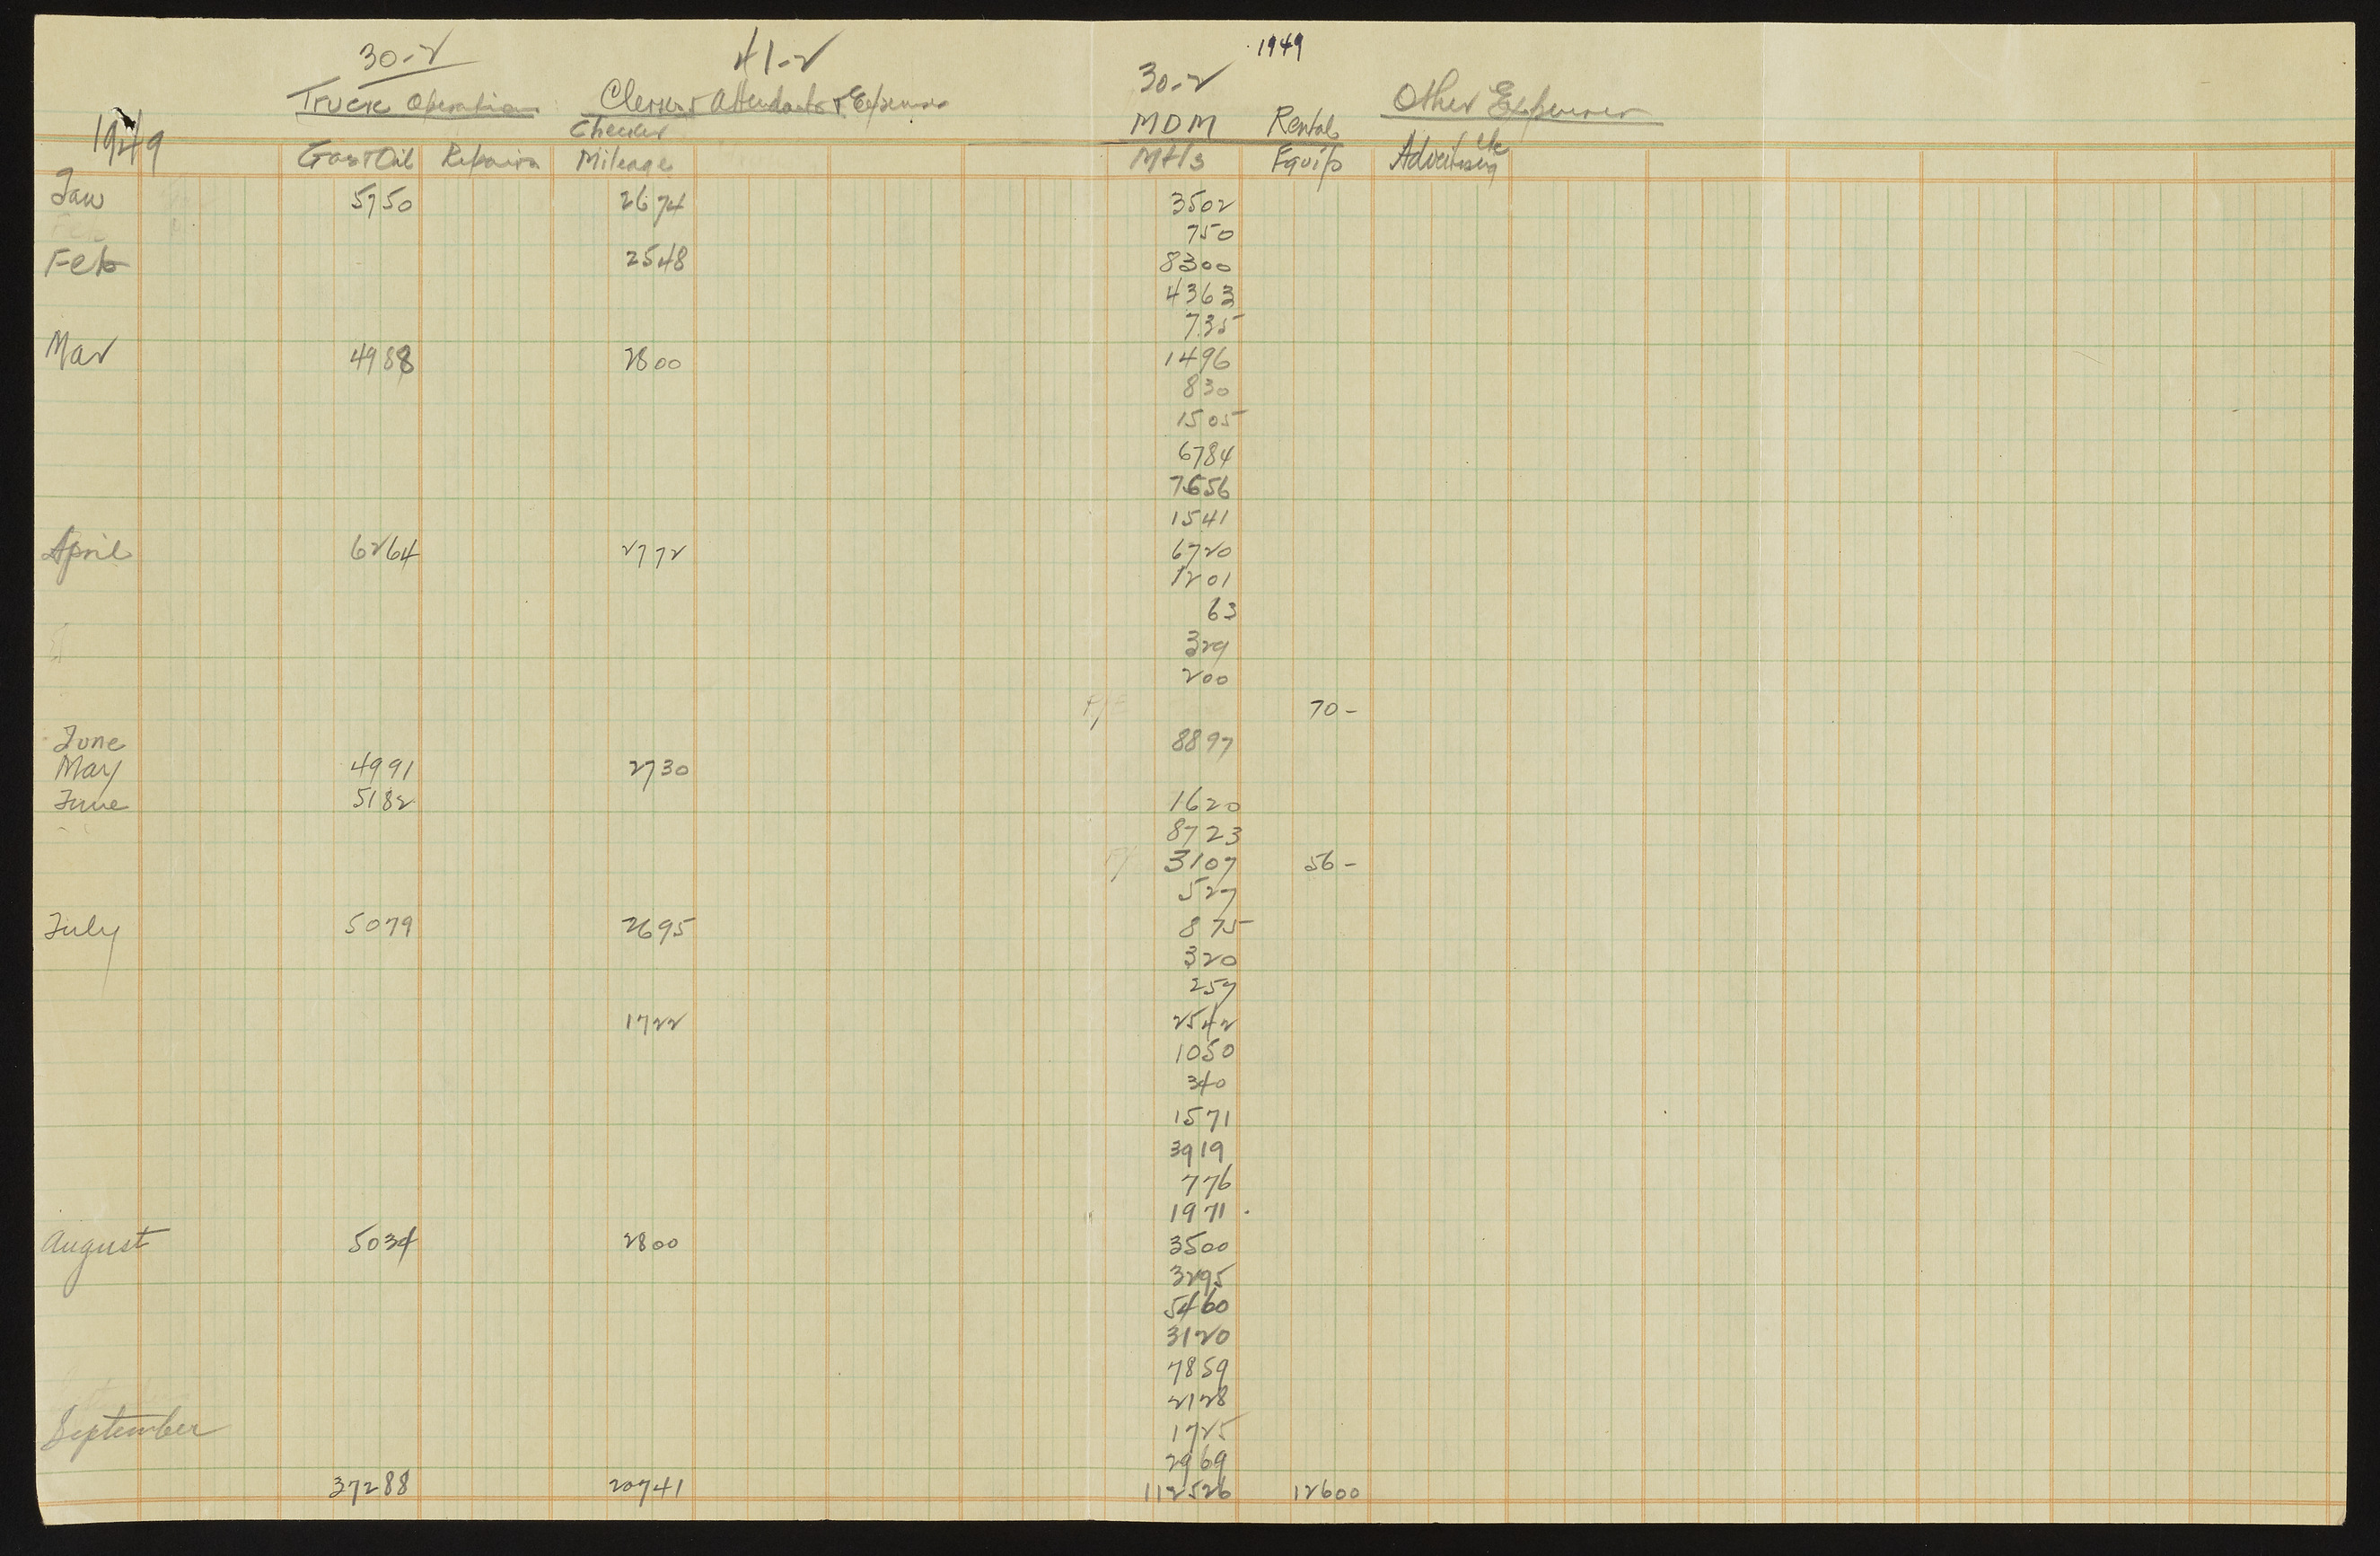 30-2 41-2 30-2 1949
Truck Operation Clerks & Attendants & Expenses Other Expenses
1949 Checker MDM Rental
Gas & Oil Repairs Mileage Mtls Equip Advertising Etc
Jan 5750 2674 3502
750
Feb 2548 8300
4363
735
Mar 4988 2800 1496
830
1505
6784
7656
1541
April 6264 2772 6720
1201
63
329
200
70-
June 8897
May 4991 2730
June 5182 1620
8723
3107 56-
527
July 5079 2695 875
320
257
1722 2542
1050
340
1571
3919
776
1971
August 5034 2800 3500
3295
5460
3120
7859
2128
September 1725
2969
37288 20741 112526 12600